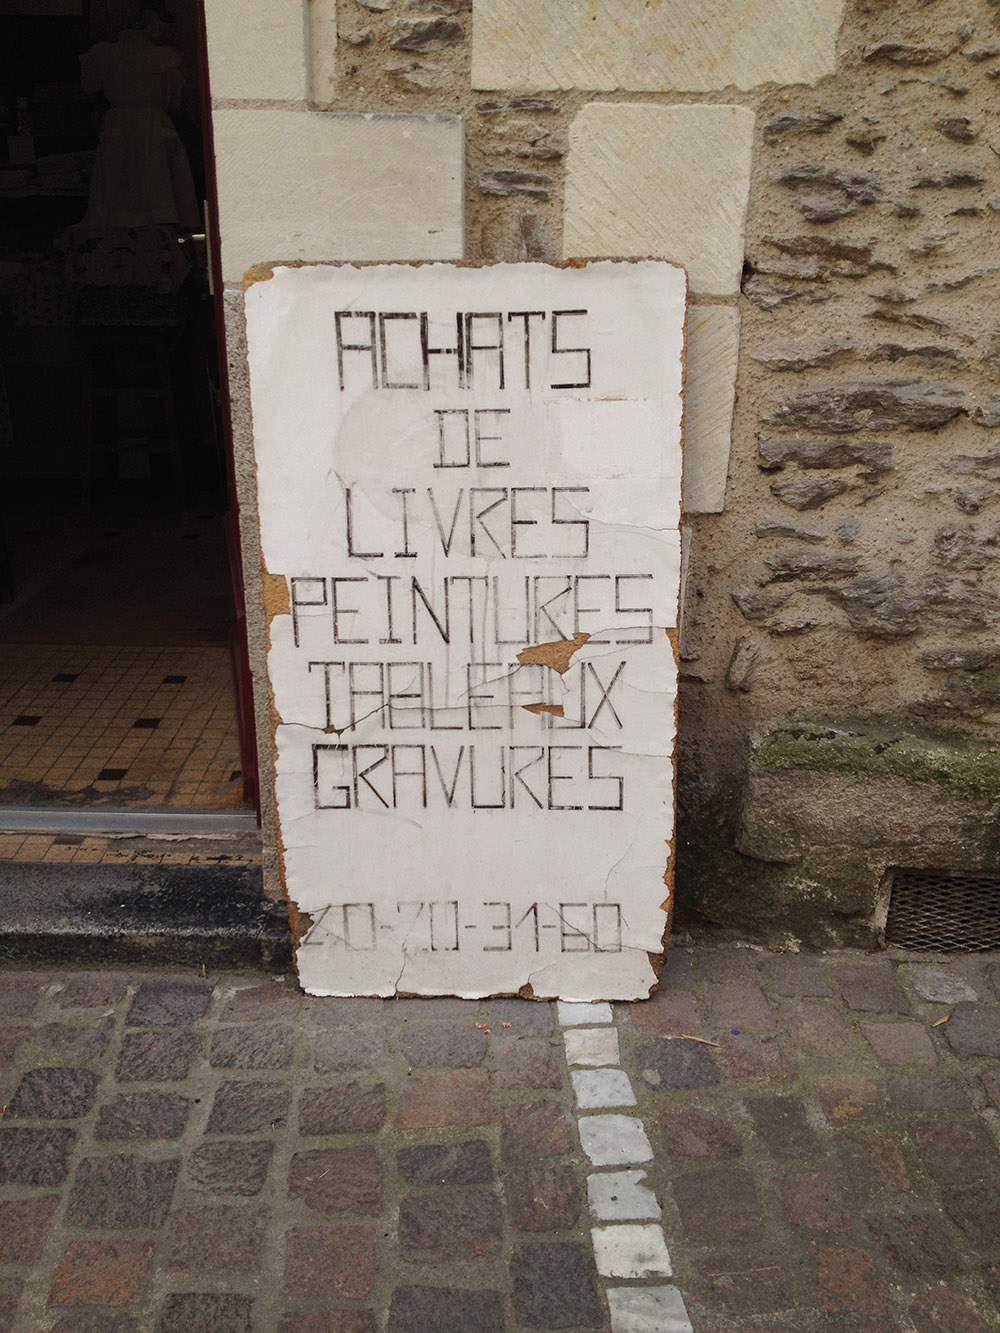 ACHATS
DE
LIVRES
PEINTURES
TABLEAUX
GRAVURES
40-70-31-60